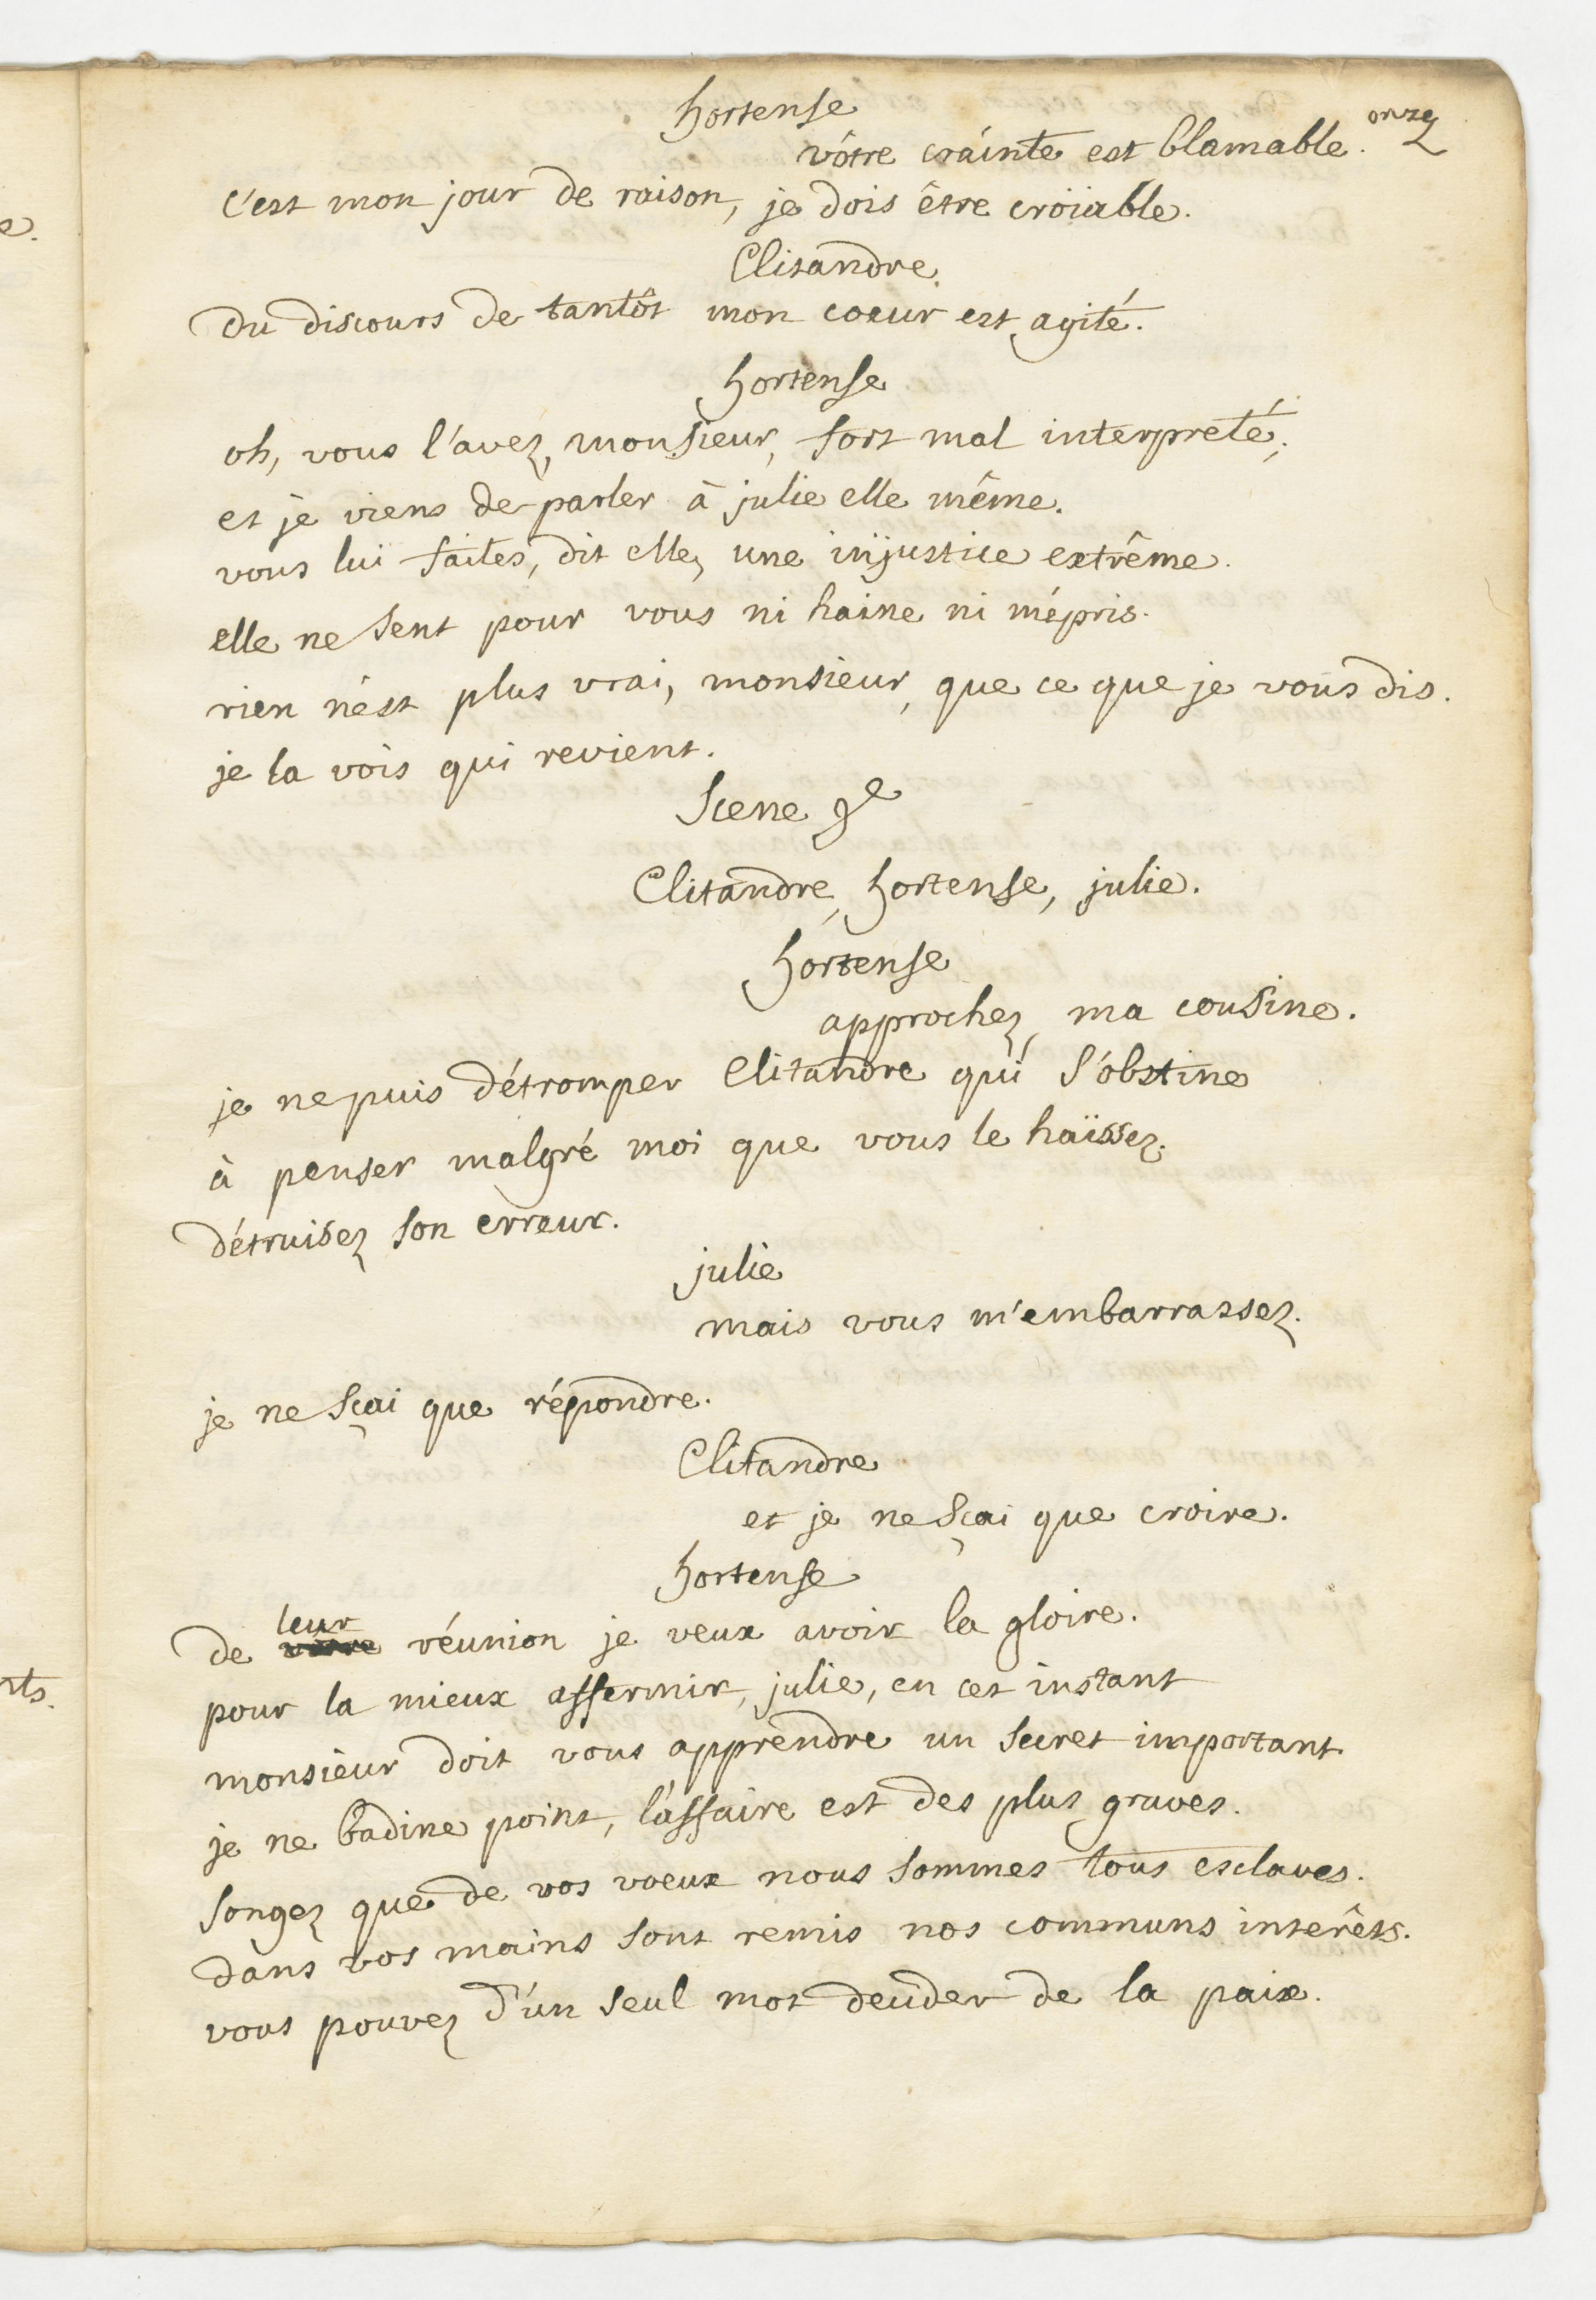 hortense
onze
vôtre crainte est blamable.
c'est mon jour de raison, je dois être croïable.
Clitandre
du discours de tantôt mon coeur est agité.
hortense
oh, vous l'avez, monsieur, fort mal interpreté;
et je viens de parler à julie elle même.
vous lui faites, dit elle, une injustice extrême.
elle ne sent pour vous ni haine ni mépris.
rien n'est plus vrai, monsieur, que ce que je vous dis.
je la vois qui revient.
Scene 9e
Clitandre, hortense, julie.
hortense
approchez, ma cousine.
je ne puis détromper Clitandre qui s'obstine
à penser malgré moi que vous le haïssez.
détruisez son erreur.
julie
mais vous m'embarrassez.
je ne sçai que répondre.
Clitandre
et je ne sçai que croire.
hortense
leur
de vôtre réunion je veux avoir la gloire.
pour la mieux affermir, julie, en cet instant
monsieur doit vous apprendre un secret important
je ne badine point, l'affaire est des plus graves.
songez que de vos voeux nous sommes tous esclaves.
dans vos mains sont remis nos communs interêts.
vous pouvez d'un seul mot decider de la paix.